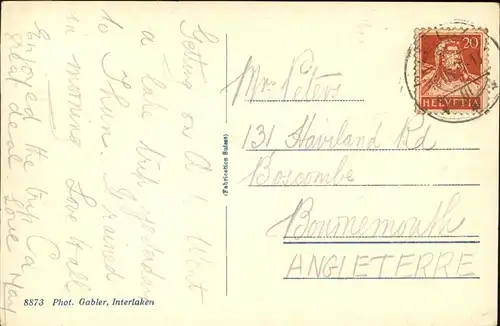 Getting on A 1. Went
a lake trip yesterday
to Thun. It rained
in morning Love to all
Enjoyed the trip
great deal. Love
Mrs Peters
131 Haviland Rd
Boscombe
Bournemouth
ANGLETERRE
20
HELVETIA
(Fabrication Suisse)
8873 Phot. Gabler, Interlaken